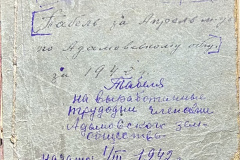 Табель за Апрель м-ц
по Адамовскому общ.
за 194
Табеля
на выработанные
трудодни членами
Адамовского зем-
общества
Начато 1/III 1942